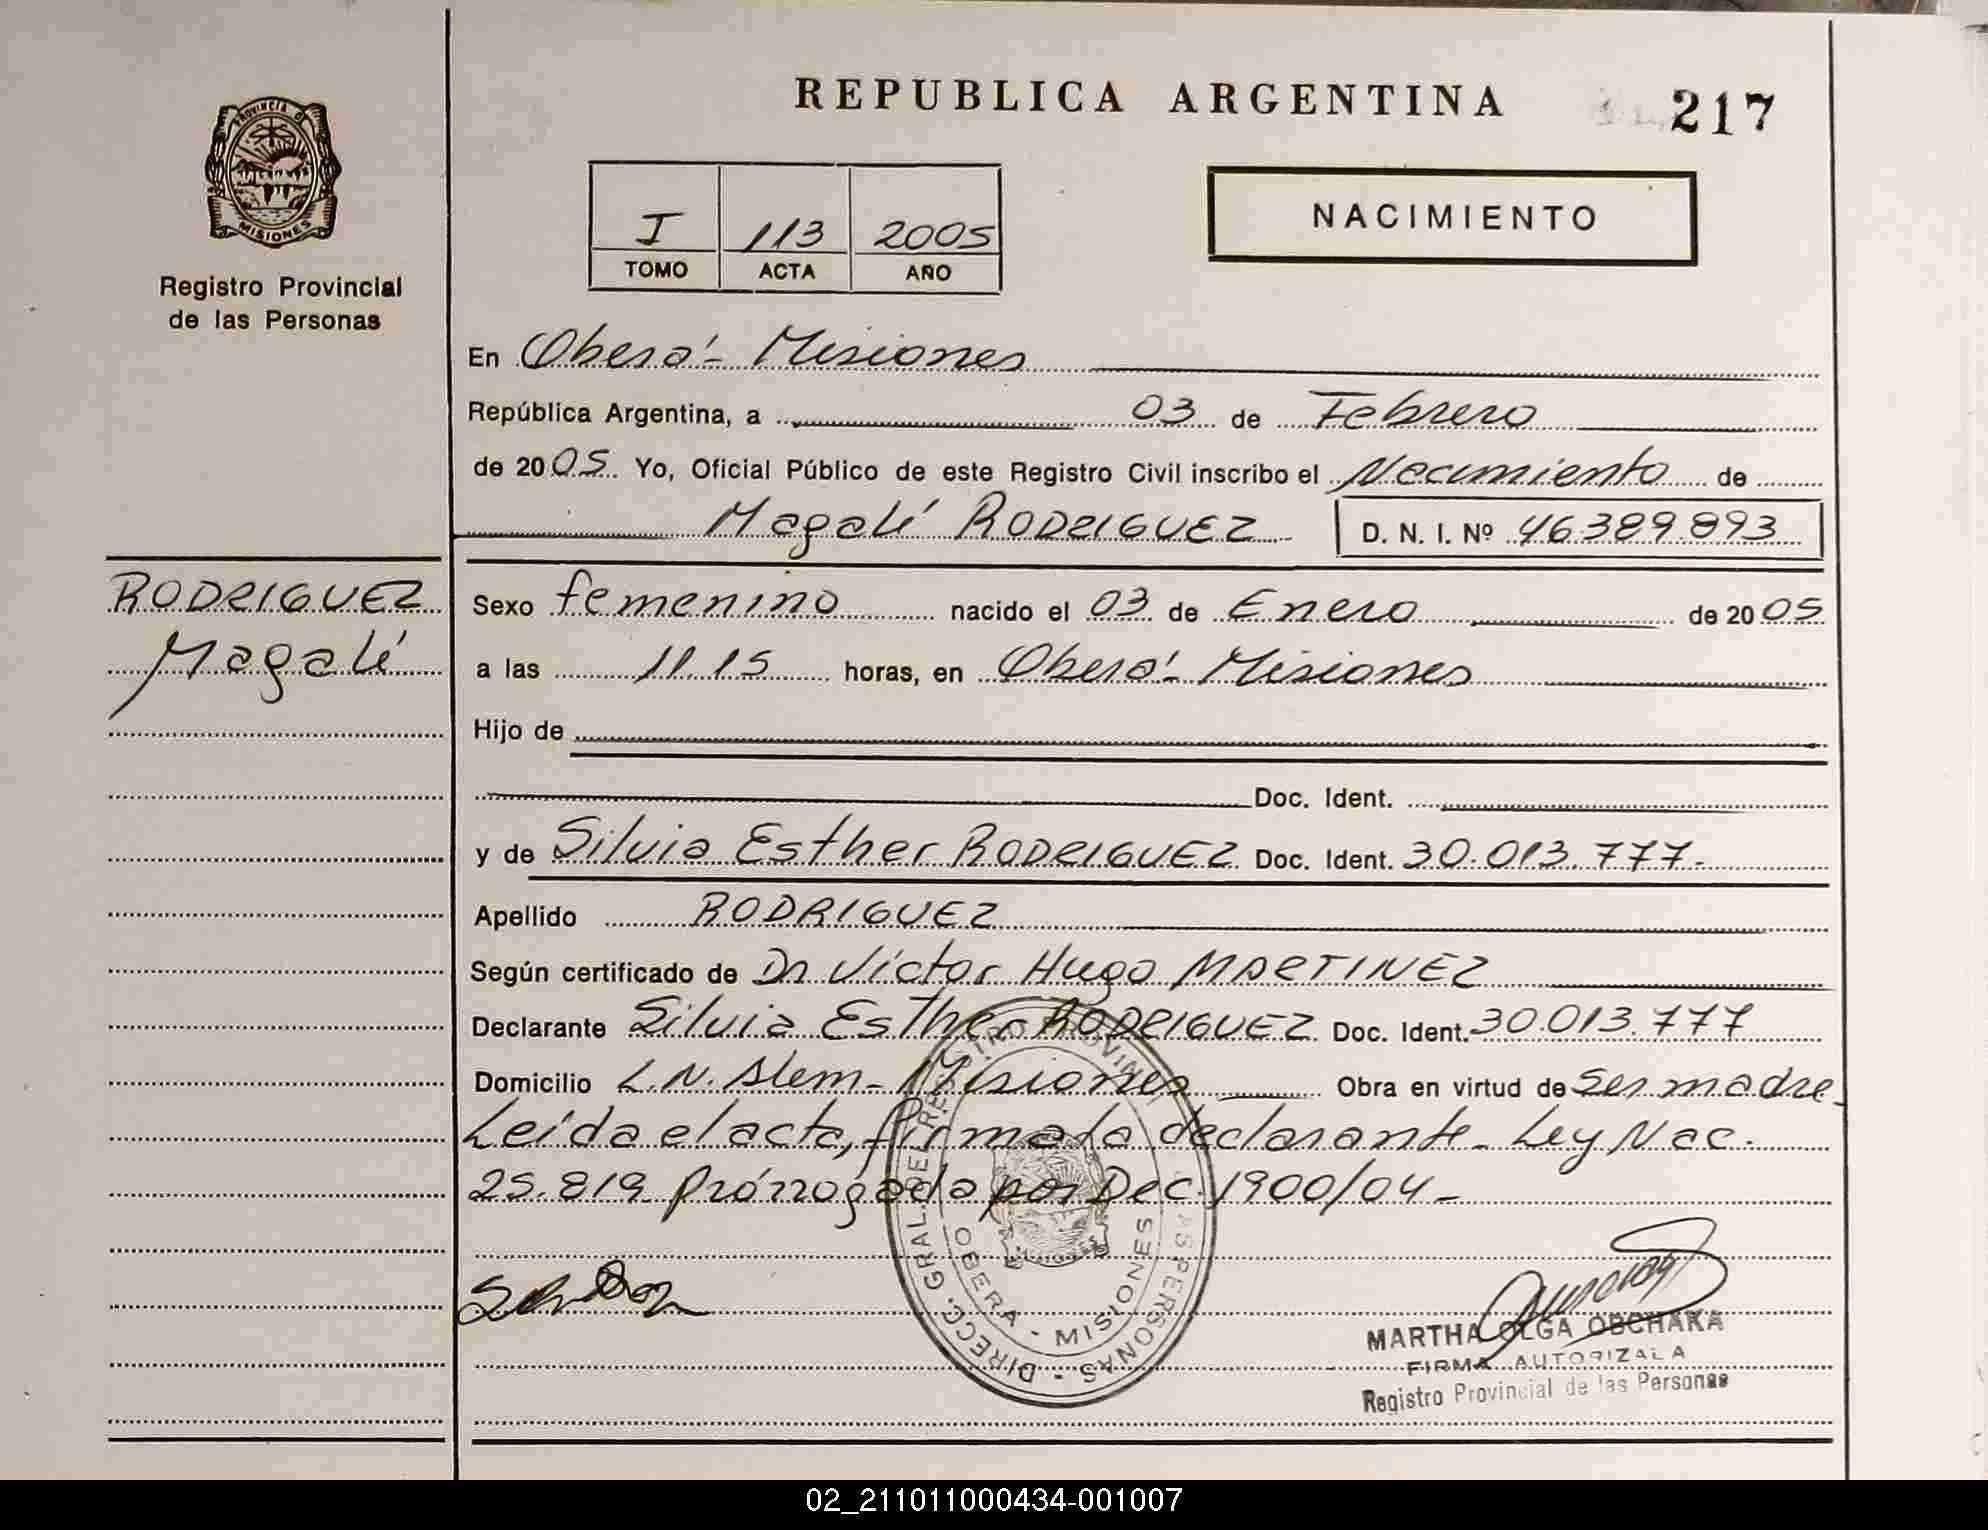 REPUBLICA ARGENTINA
217
PROVINCIA D
MISIONES
Registro Provincial
de las Personas
I 113 2005
TOMO ACTA AÑO
NACIMIENTO
En Oberá - Misiones
República Argentina, a 03 de Febrero
de 2005. Yo, Oficial Público de este Registro Civil inscribo el Nacimiento de
Magalí RODRIGUEZ D. N. I. Nº 46.389.893
RODRIGUEZ
Magalí
Sexo femenino nacido el 03 de Enero de 2005
a las 11.15 horas, en Oberá - Misiones
Hijo de
Doc. Ident.
y de Silvia Esther RODRIGUEZ Doc. Ident. 30.013.777-
Apellido RODRIGUEZ
Según certificado de Dr Victor Hugo MARTINEZ
Declarante Silvia Esther RODRIGUEZ Doc. Ident. 30.013.777
Domicilio L.N. Alem - Misiones Obra en virtud de ser madre_
Leída el acta, firma la declarante - Ley Nac.
25.819 prórrogada por Dec. 1900/04 -
DIRECC. GRAL. DEL REGISTRO PROVINCIAL DE LAS PERSONAS -
OBERA - MISIONES
MISIONES
MARTHA OLGA OBCHAKA
FIRMA AUTORIZADA
Registro Provincial de las Personas
02_211011000434-001007